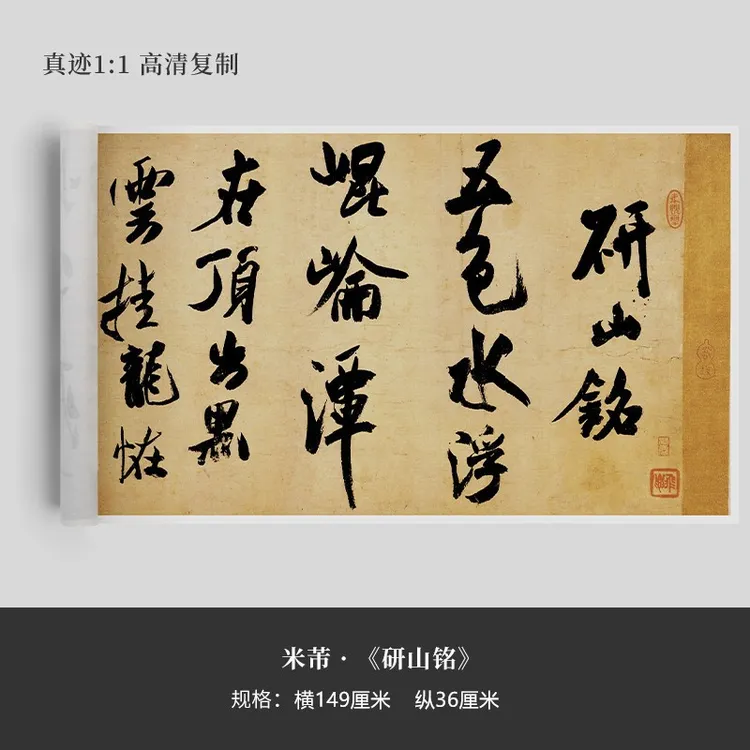 真迹1:1 高清复制
研山銘
五色水浮
崐崘潭
在頂出黑
雲挂龍怪
米芾·《研山铭》
规格：横149厘米 纵36厘米